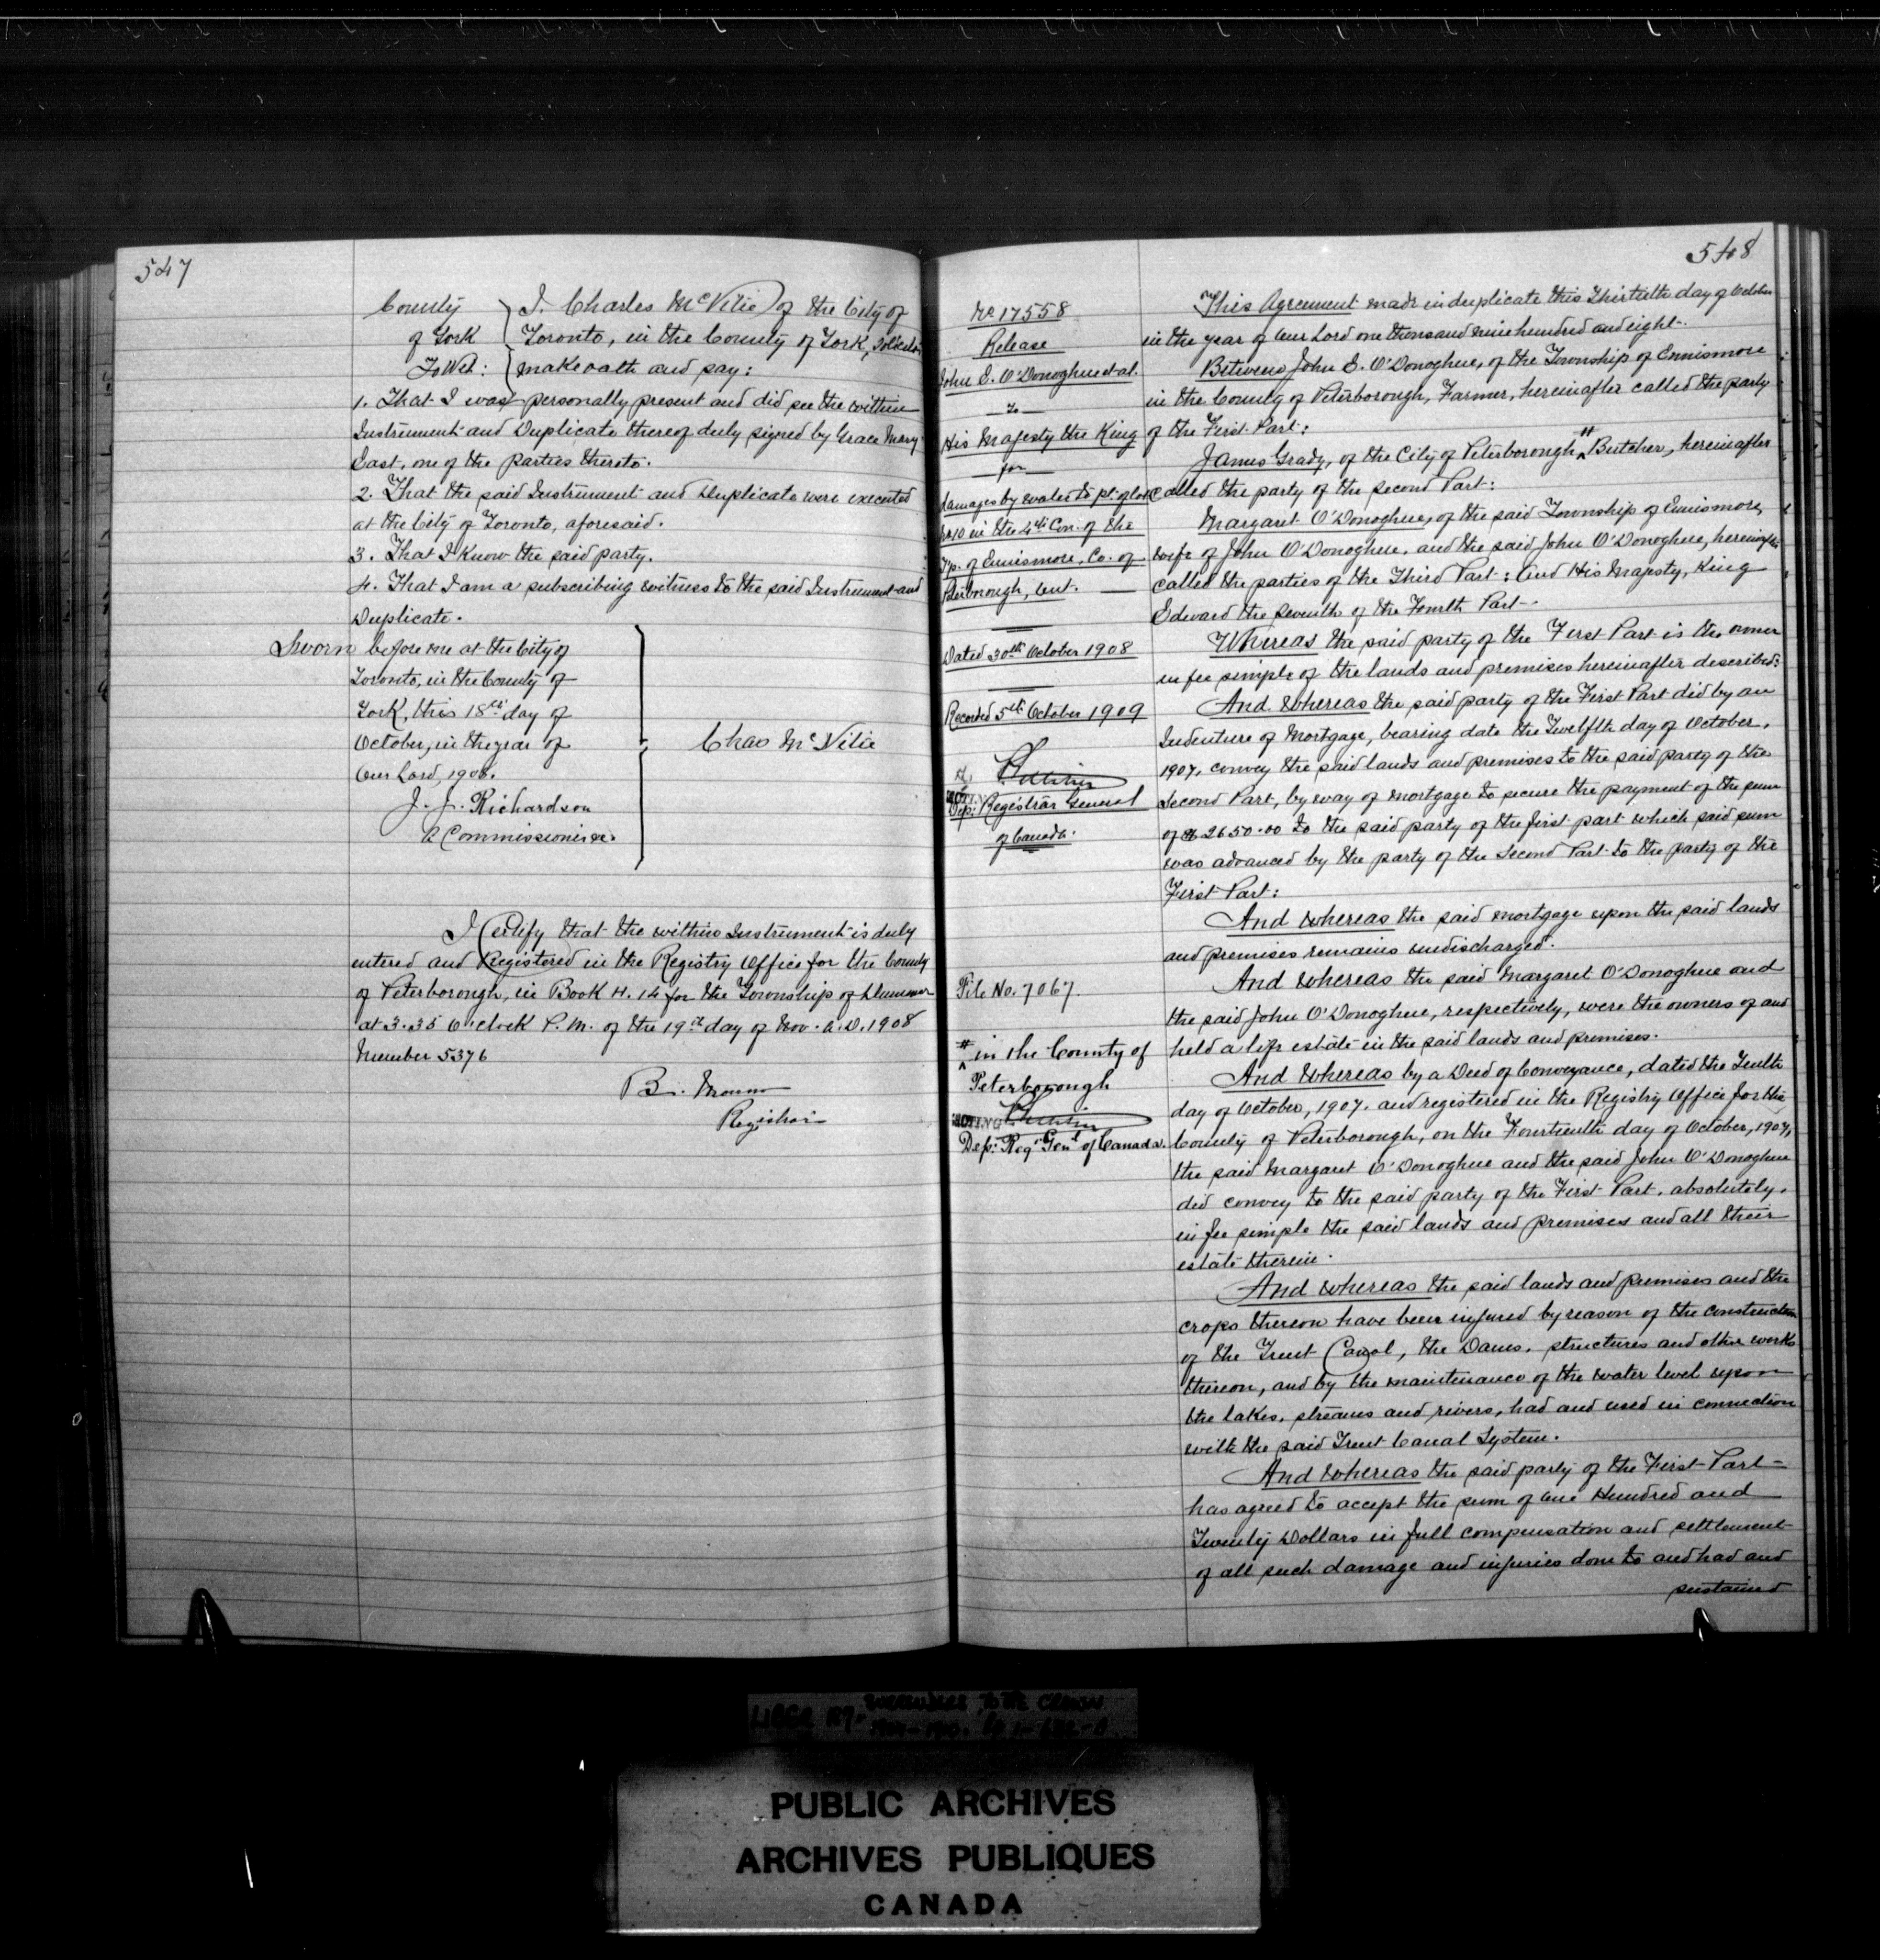 547
County
of York
To Wit:
I, Charles McVitie of the City of
Toronto, in the County of York, Solicitor
make oath and say:
1. That I was personally present and did see the within
Instrument and Duplicate thereof duly signed by Grace Mary
East, one of the parties thereto.
2. That the said Instrument and Duplicate were executed
at the City of Toronto, aforesaid.
3. That I know the said party.
4. That I am a subscribing witness to the said Instrument and
Duplicate.
Sworn before me at the City of
Toronto, in the County of
York, this 18th day of
October, in the year of
Our Lord, 1908.
Chas McVitie
J. J. Richardson
A Commissioner &c.
I Certify that the within Instrument is duly
entered and Registered in the Registry Office for the County
of Peterborough, in Book H. 14 for the Township of Dummer
at 3.35 O'clock P.M. of the 19th day of Nov. A.D. 1908
Number 5376
B. Morrow
Registrar
548
No 17558
Release
John E. O'Donoghue et al.
to
His Majesty the King
for
damages by water to pt. of lot
No 10 in the 4th Con. of the
Tp. of Ennismore, Co. of
Peterborough, Ont.
Dated 30th October 1908
Recorded 5th October 1909
Dep. Registrar General
of Canada.
File No. 7067
# in the County of
Peterborough
ACTING
Dep. Reg. Genl of Canada.
This Agreement made in duplicate this Thirtieth day of October
in the year of Our Lord one thousand nine hundred and eight.
Between John E. O'Donoghue, of the Township of Ennismore
in the County of Peterborough, Farmer, hereinafter called the party
of the First Part:
James Grady, of the City of Peterborough # Butcher, hereinafter
called the party of the second Part:
Margaret O'Donoghue, of the said Township of Ennismore,
wife of John O'Donoghue, and the said John O'Donoghue, hereinafter
called the parties of the Third Part: And His Majesty, King
Edward the Seventh of the Fourth Part.
Whereas the said party of the First Part is the owner
in fee simple of the lands and premises hereinafter described:
And Whereas the said party of the First Part did by an
Indenture of Mortgage, bearing date the Twelfth day of October,
1907, convey the said lands and premises to the said party of the
Second Part, by way of mortgage to secure the payment of the sum
of $2650.00 to the said party of the first part which said sum
was advanced by the party of the Second Part to the party of the
First Part:
And Whereas the said mortgage upon the said lands
and premises remains undischarged.
And Whereas the said Margaret O'Donoghue and
the said John O'Donoghue, respectively, were the owners of and
held a life estate in the said lands and premises.
And Whereas by a Deed of Conveyance, dated the Tenth
day of October, 1907, and registered in the Registry Office for the
County of Peterborough, on the Fourteenth day of October, 1907,
the said Margaret O'Donoghue and the said John O'Donoghue
did convey to the said party of the First Part, absolutely,
in fee simple the said lands and premises and all their
estate therein.
And Whereas the said lands and premises and the
crops thereon have been injured by reason of the construction
of the Trent Canal, the Dams, structures and other works
thereon, and by the maintenance of the water level upon
the lakes, streams and rivers, had and used in connection
with the said Trent Canal System.
And Whereas the said party of the First Part
has agreed to accept the sum of One Hundred and
Twenty Dollars in full compensation and settlement
of all such damage and injuries done to and had and
sustained
SURRENDERS TO THE CROWN
PUBLIC ARCHIVES
ARCHIVES PUBLIQUES
CANADA